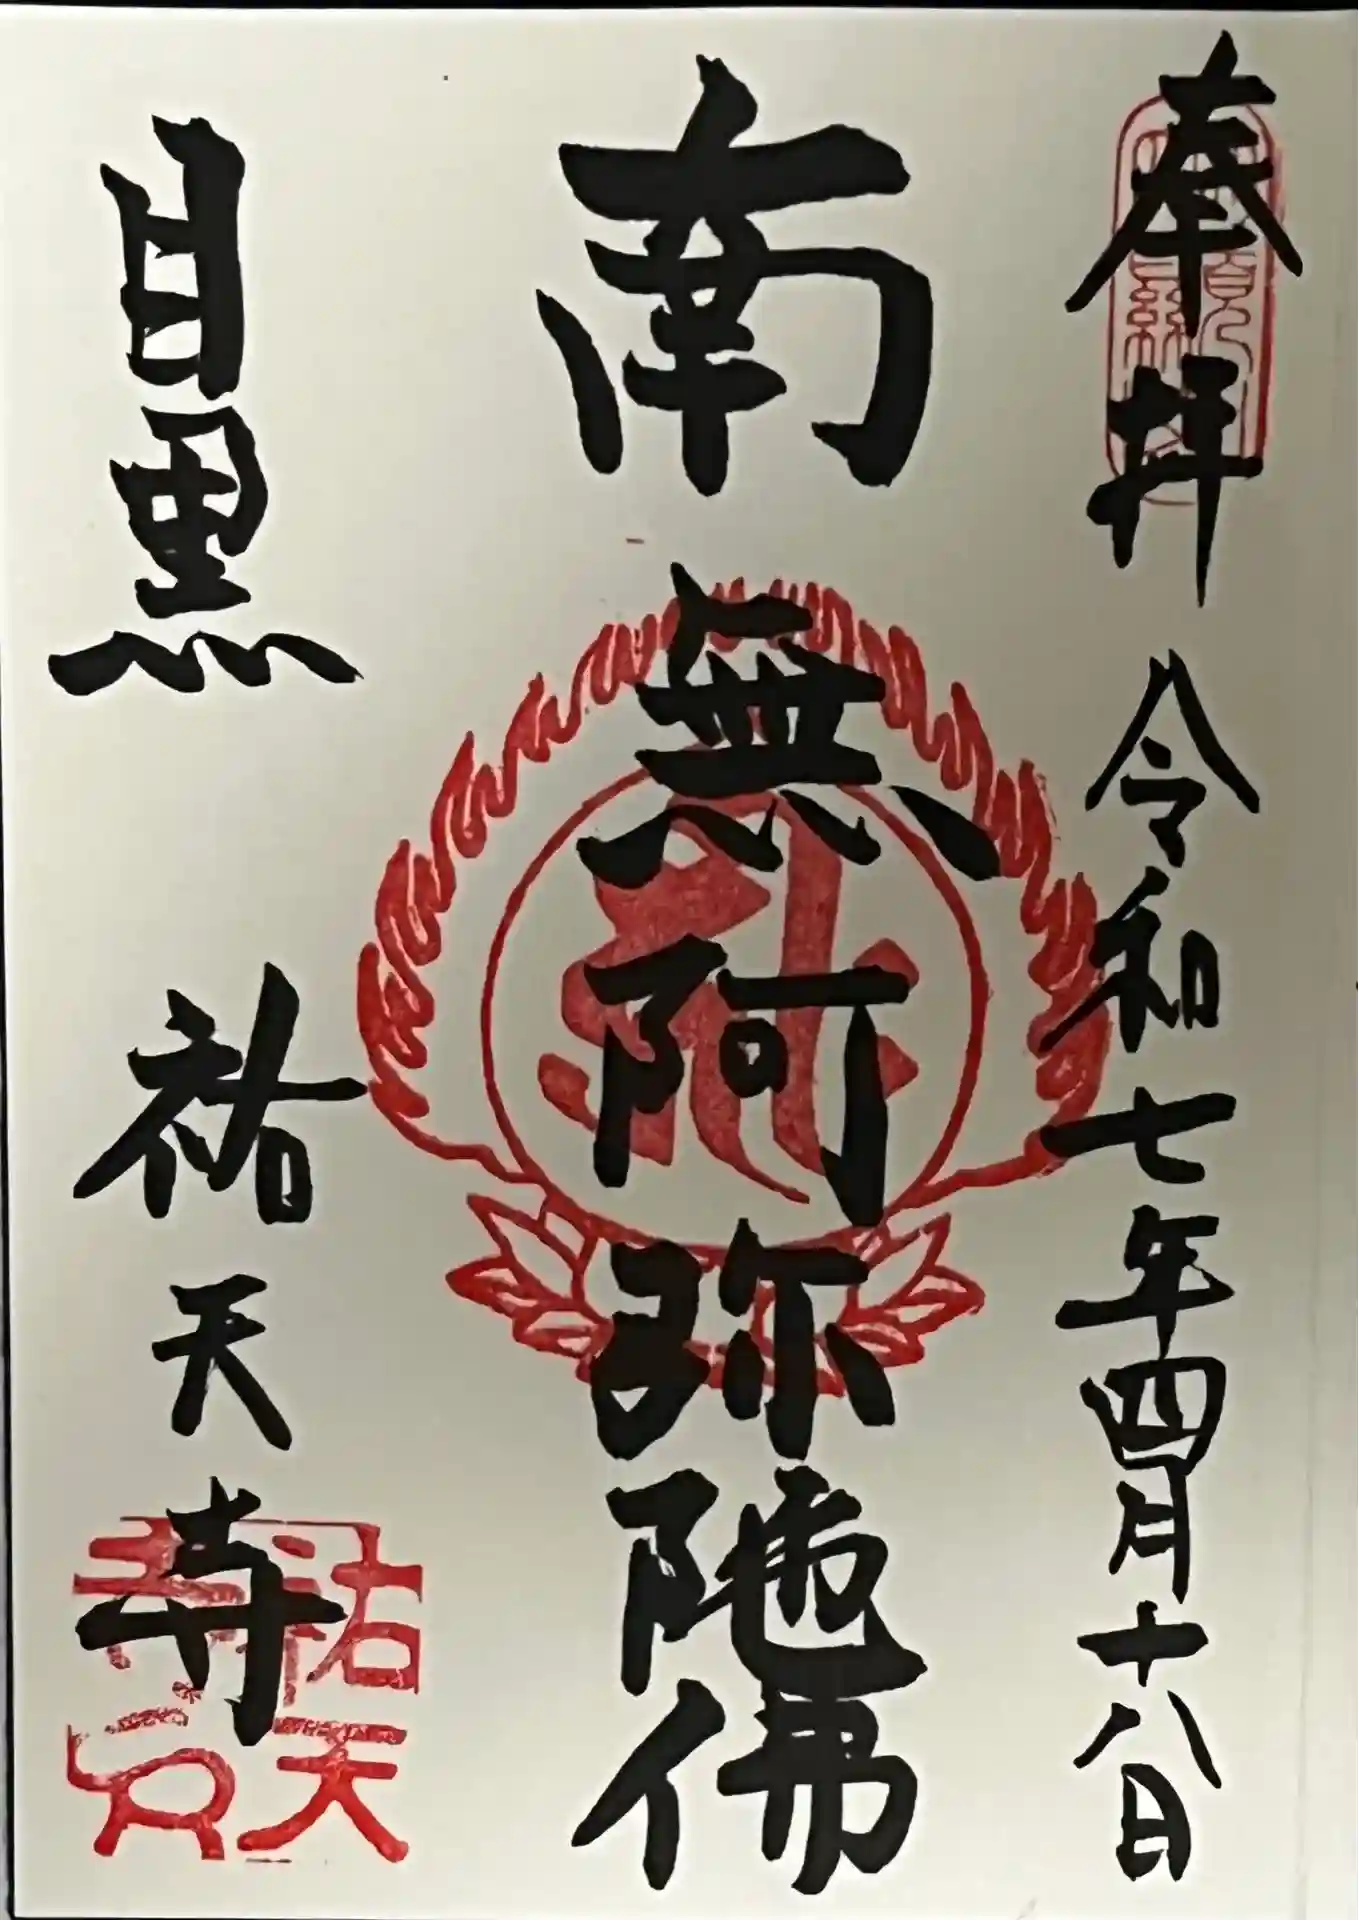 奉拝 令和七年四月十八日
南無阿弥陀佛
目黒 祐天寺